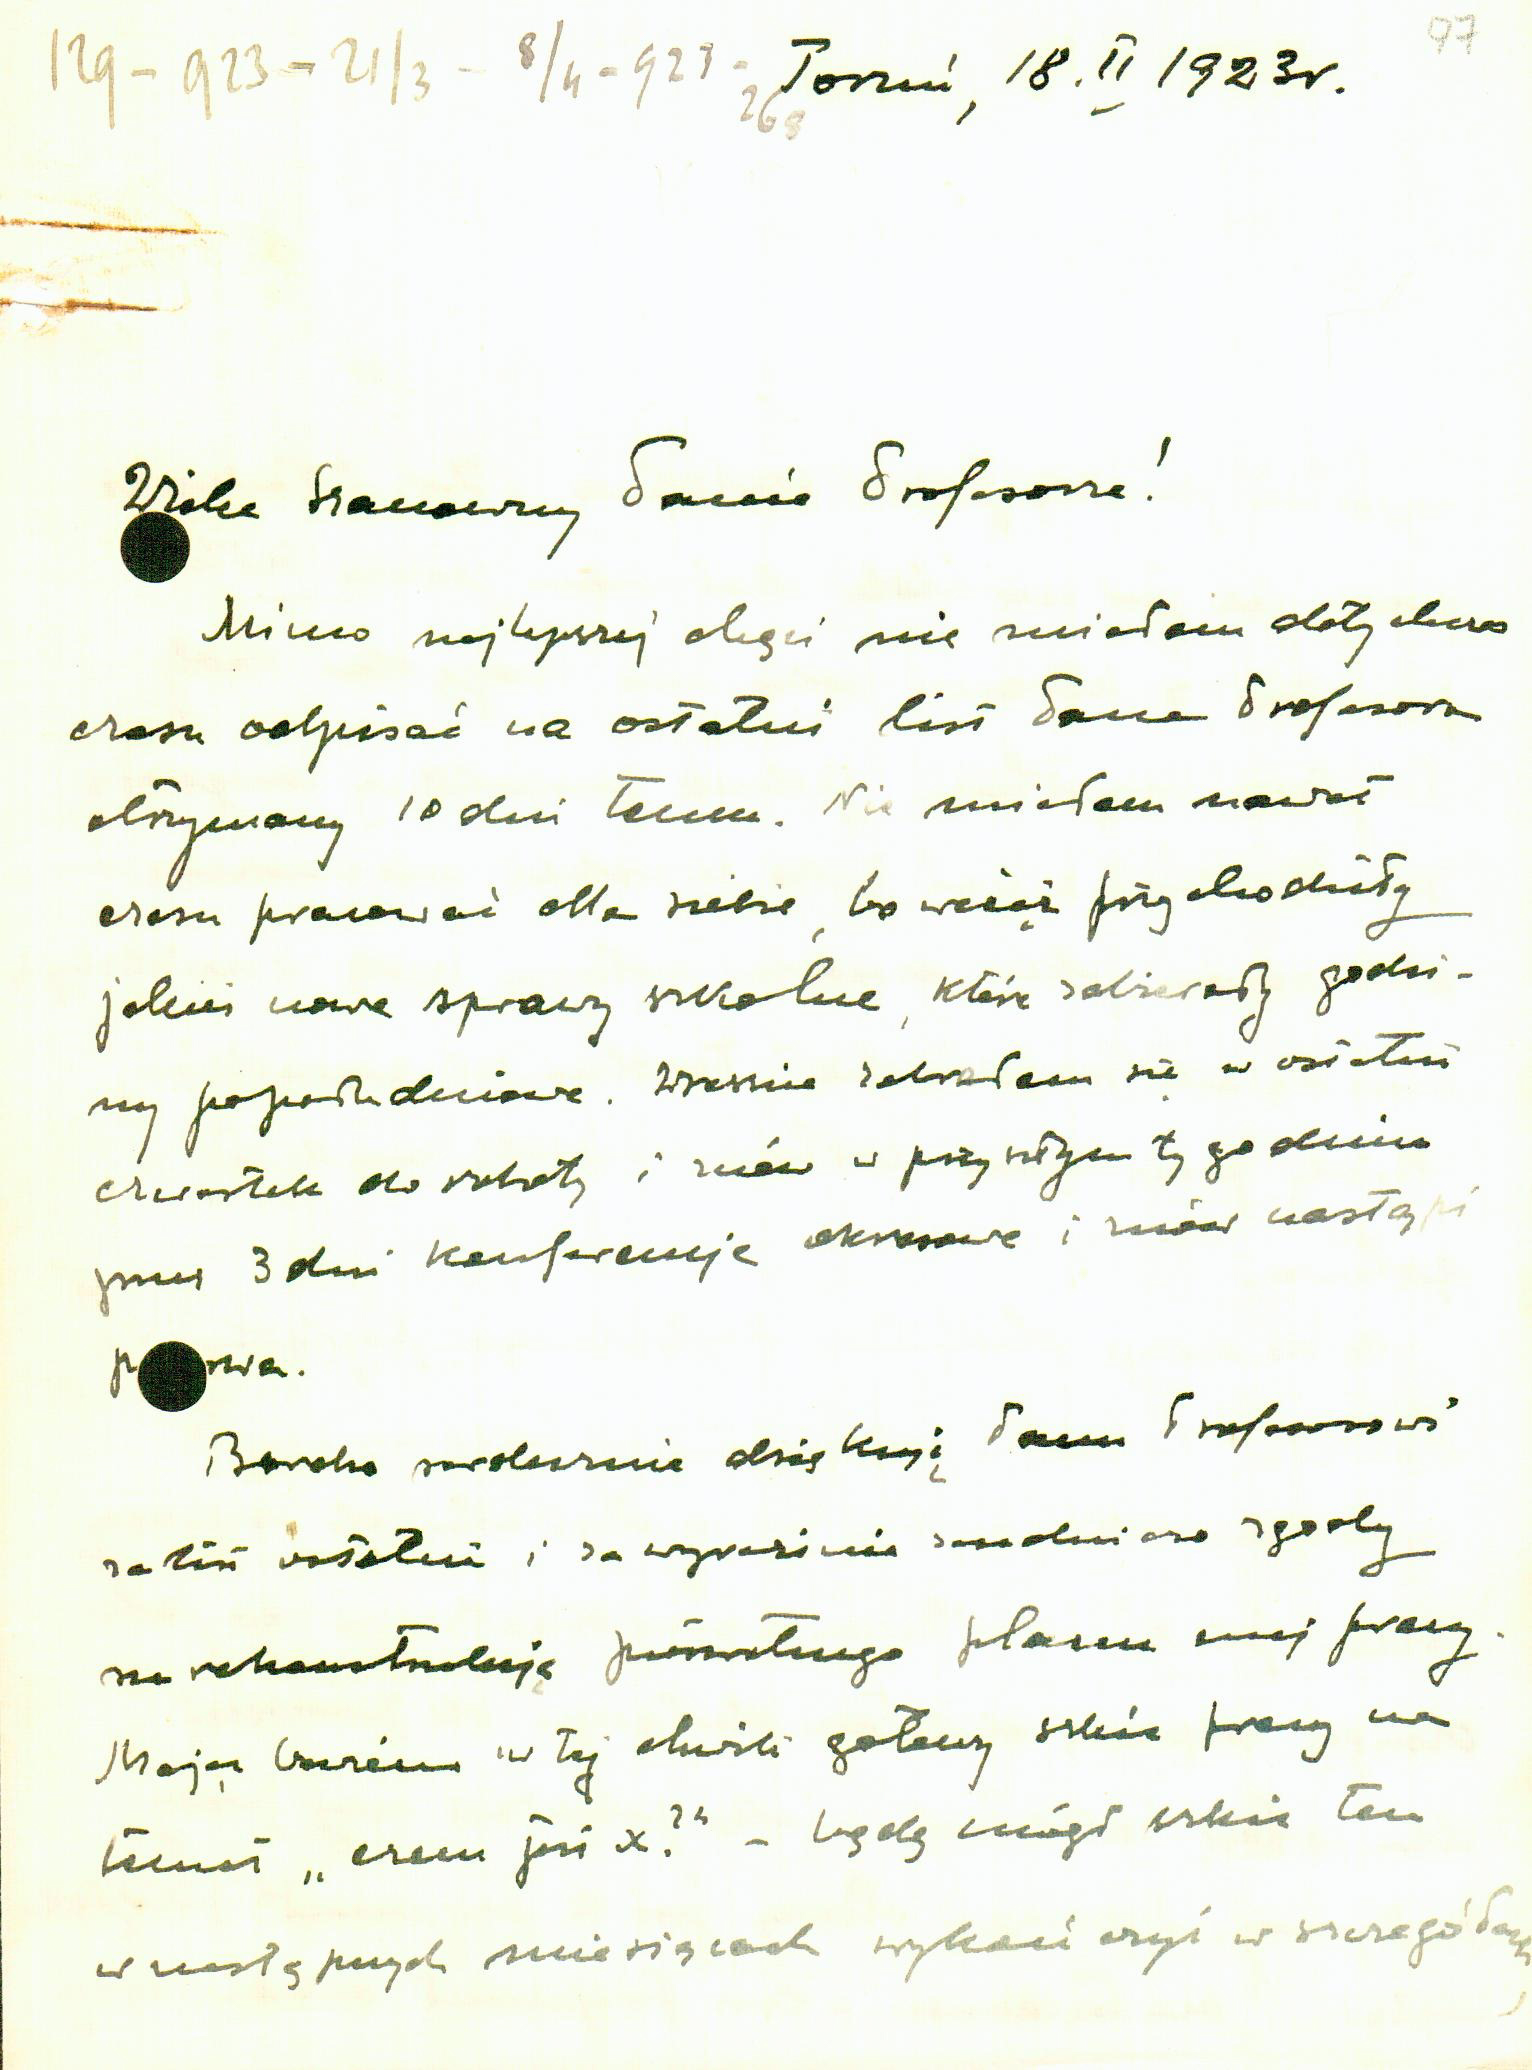 97
129 - 923 - 21/3 - 8/4 - 923 - 268
Toruń, 18. II 1923 r.
Wielce Szanowny Panie Profesorze!
Mimo najlepszej chęci nie miałem dotychczas
czasu odpisać na ostatni list Pana Profesora
otrzymany 10 dni temu. Nie miałem nawet
czasu pracować dla siebie, bo wciąż przychodziły
jakieś nowe sprawy szkolne, które zabierały godzi-
ny popołudniowe. Wreszcie zabrałem się w ostatni
czwartek do roboty i znów w przyszłym tygodniu
przez 3 dni konferencje okresowe i znów nastąpi
przerwa.
Bardzo serdecznie dziękuję Panu Profesorowi
za list ostatni i za wyrażenie zasadniczo zgody
na rekonstrukcję pierwotnego planu mej pracy.
Mając bowiem w tej chwili gotowy szkic pracy na
temat „czem jest x?" - będę mógł szkic ten
w następnych miesiącach wykończyć w szczegółach,